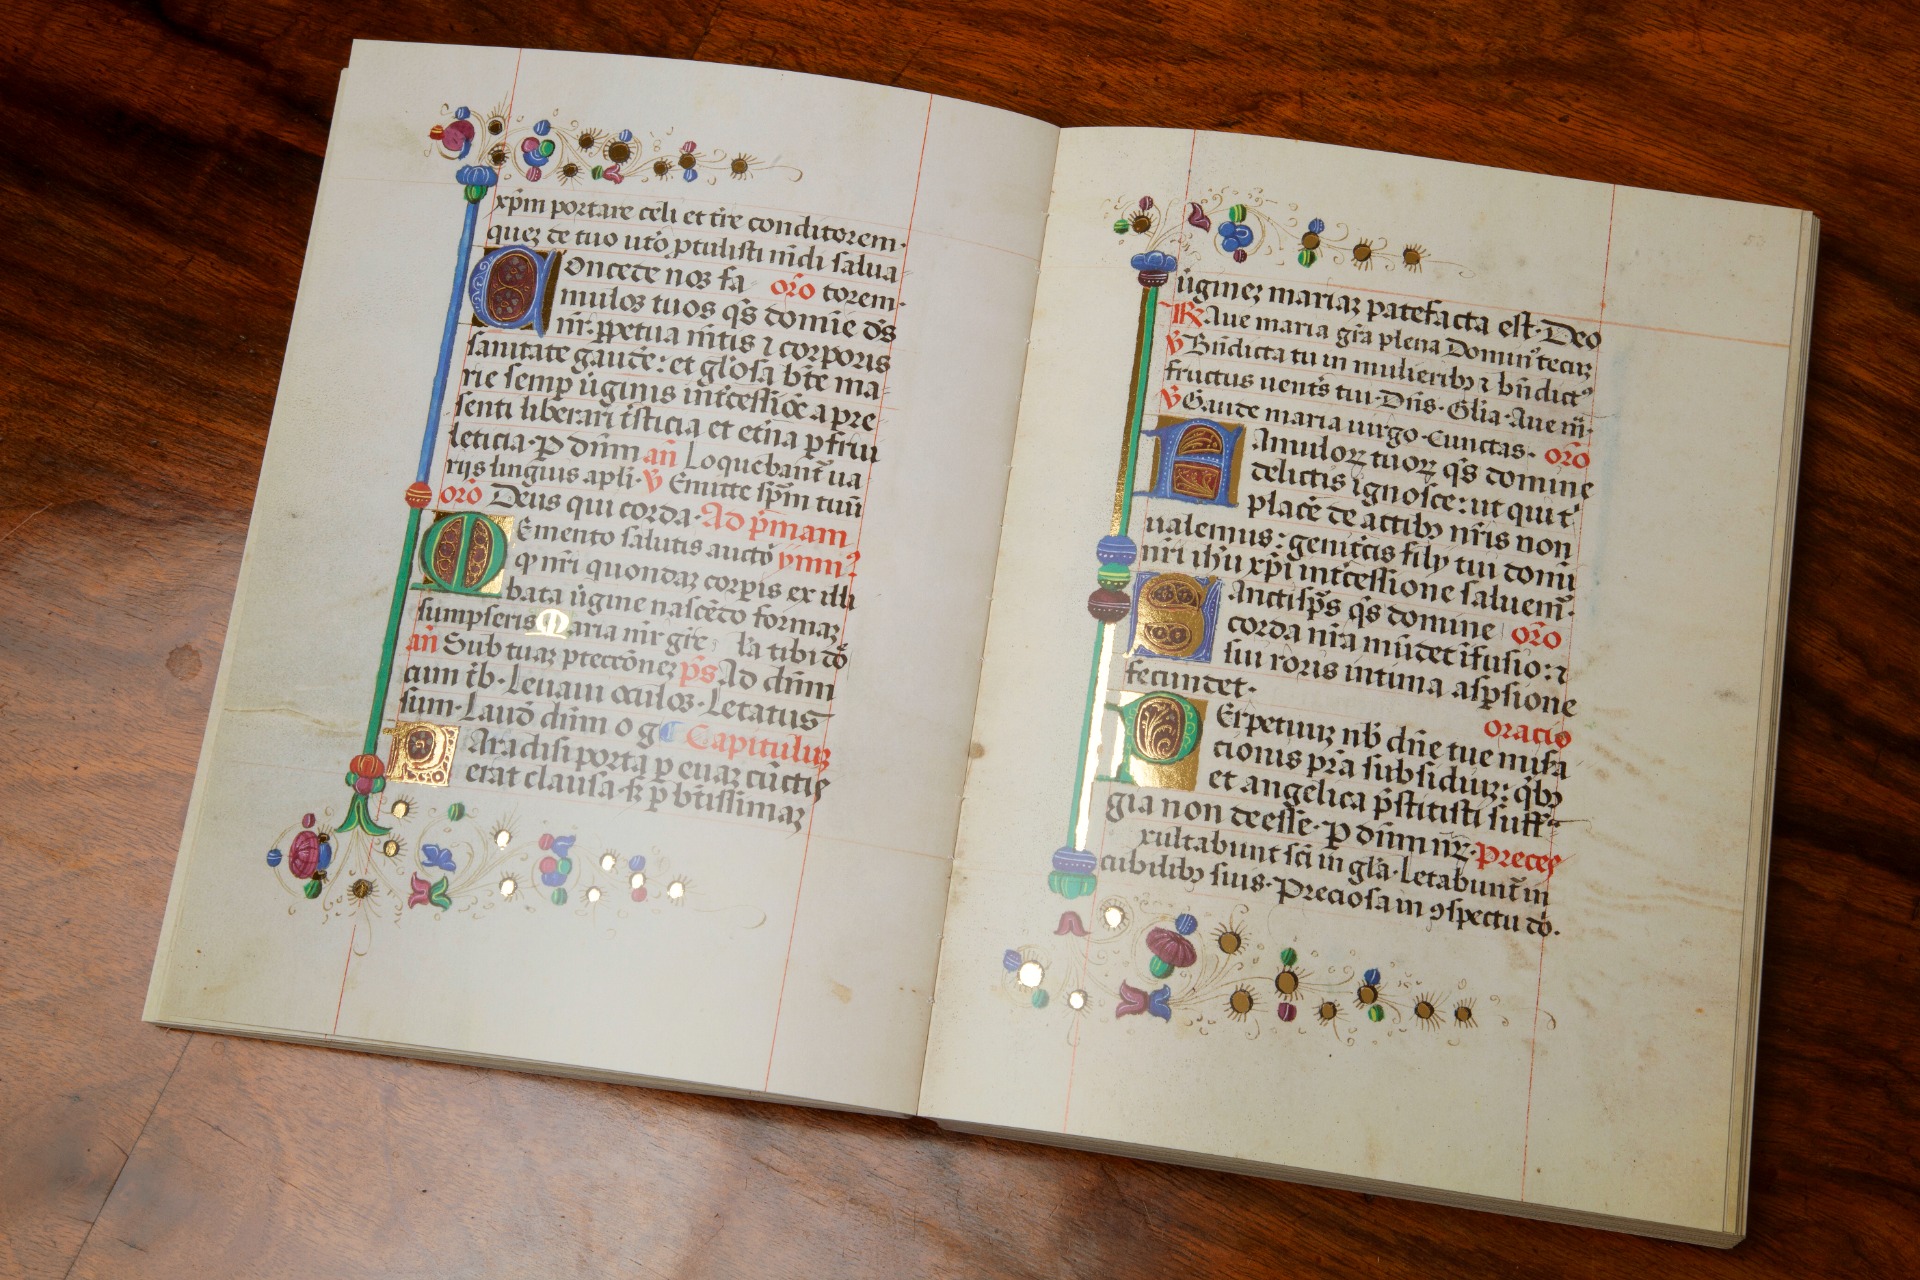 xp̄m portare celi et tr̄e conditorem·
quez de tuo utō ꝑtulisti mūdi salua
Oncede nos fa orō torem·
mulos tuos qs̄ domīe ds̄
nr̄: ꝑpetua mētis ⁊ corporis
sanitate gaudē: et glōsa btē ma-
rie semꝑ ūginis int̄cessiōe a pre
senti liberari t̄sticia et et̄na ꝑfrui
leticia· ꝑ dn̄m an̄ Loquebant̄ ua
rijs linguis apl̄i· ℣ Emitte sp̄m tuū
orō Deus qui corda· Ad p̄mam
Emento salutis auctō ymnꝰ
qͥ nr̄i quondaz corꝑis ex illi
bata ūgine nascēdo formaz
sumpseris Maria mr̄ grē la tibi dō
an̄ Sub tuaz ꝓtectōnez ps̄ Ad dn̄m
cum t̄b· Leuaui oculos· Letatus
sum· Laud dn̄m o g Capituluz
Aradisi porta ꝑ euaz cūctis
erat clausa· ⁊ ꝑ bt̄issimaz
ūginez mariaz patefacta est· Deo
℟ Aue maria gr̄a plena Dominꝰ tecuz
℣ Bn̄dicta tu in mulieribꝫ ⁊ bn̄dictꝰ
fructus uent̄s tui· Dn̄s· Gl̄ia· Aue m̄·
℣ Gaude maria uirgo· Cunctas· orō
Amuloꝝ tuoꝝ qs̄ domine
delictis ignosce: ut qui t
placē de actibꝫ nr̄is non
ualemus: genit̄cis filij tui domi
nr̄i ih̄u xp̄i int̄cessione saluem̄·
Anctisp̄s qs̄ domine orō
corda nr̄a mūdet īfusio: ⁊
sui roris intima aspsione
fecundet·
oracio
Erpetuiz nb̄ dn̄e tue misa
cionis pr̄a subsidiuz: qͥbꝫ
et angelica p̄stitisti suff
gia non deesse· ꝑ dn̄m nr̄· Preces
xultabunt sc̄i in gl̄a· Letabunt̄ in
cubilibꝫ suis· Preciosa in ꝯspectu dō·